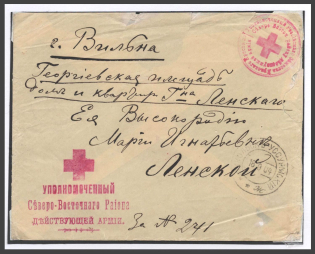 г. Вильна
Георгіевская площадь
домъ и квартир Г-на Ленскаго
Ея Высокородію
Маріи Игнатьевнѣ
Ленской
УПОЛНОМОЧЕННЫЙ
Сѣверо-Восточнаго Раіона
ДѢЙСТВУЮЩЕЙ АРМІИ.
За № 241